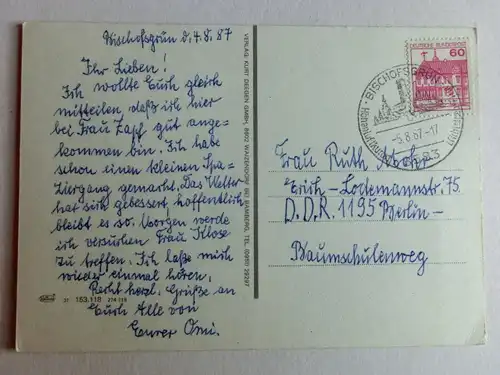 Bischofsgrün d. 4.8.87
Ihr Lieben!
Ich wollte Euch gleich
mitteilen, daß ich hier
bei Frau Zapf gut ange-
kommen bin. Ich habe
schon einen kleinen Spa-
ziergang gemacht. Das Wetter
hat sich gebessert hoffentlich
bleibt es so. Morgen werde
ich versuchen Frau Klose
zu treffen. Ich laße mich
wieder einmal hören.
Recht herzl. Grüße an
Euch Alle von
Eurer Omi.
37 163.118
VERLAG: KURT DEEGEN GMBH,
TEL.
DEUTSCHE BUNDESPOST
60
BISCHOFSGRÜN
-5.8.87-17
Frau Ruth
Erich-Lodemannstr. 75
D.D.R. 1195 Berlin-
Baumschulenweg